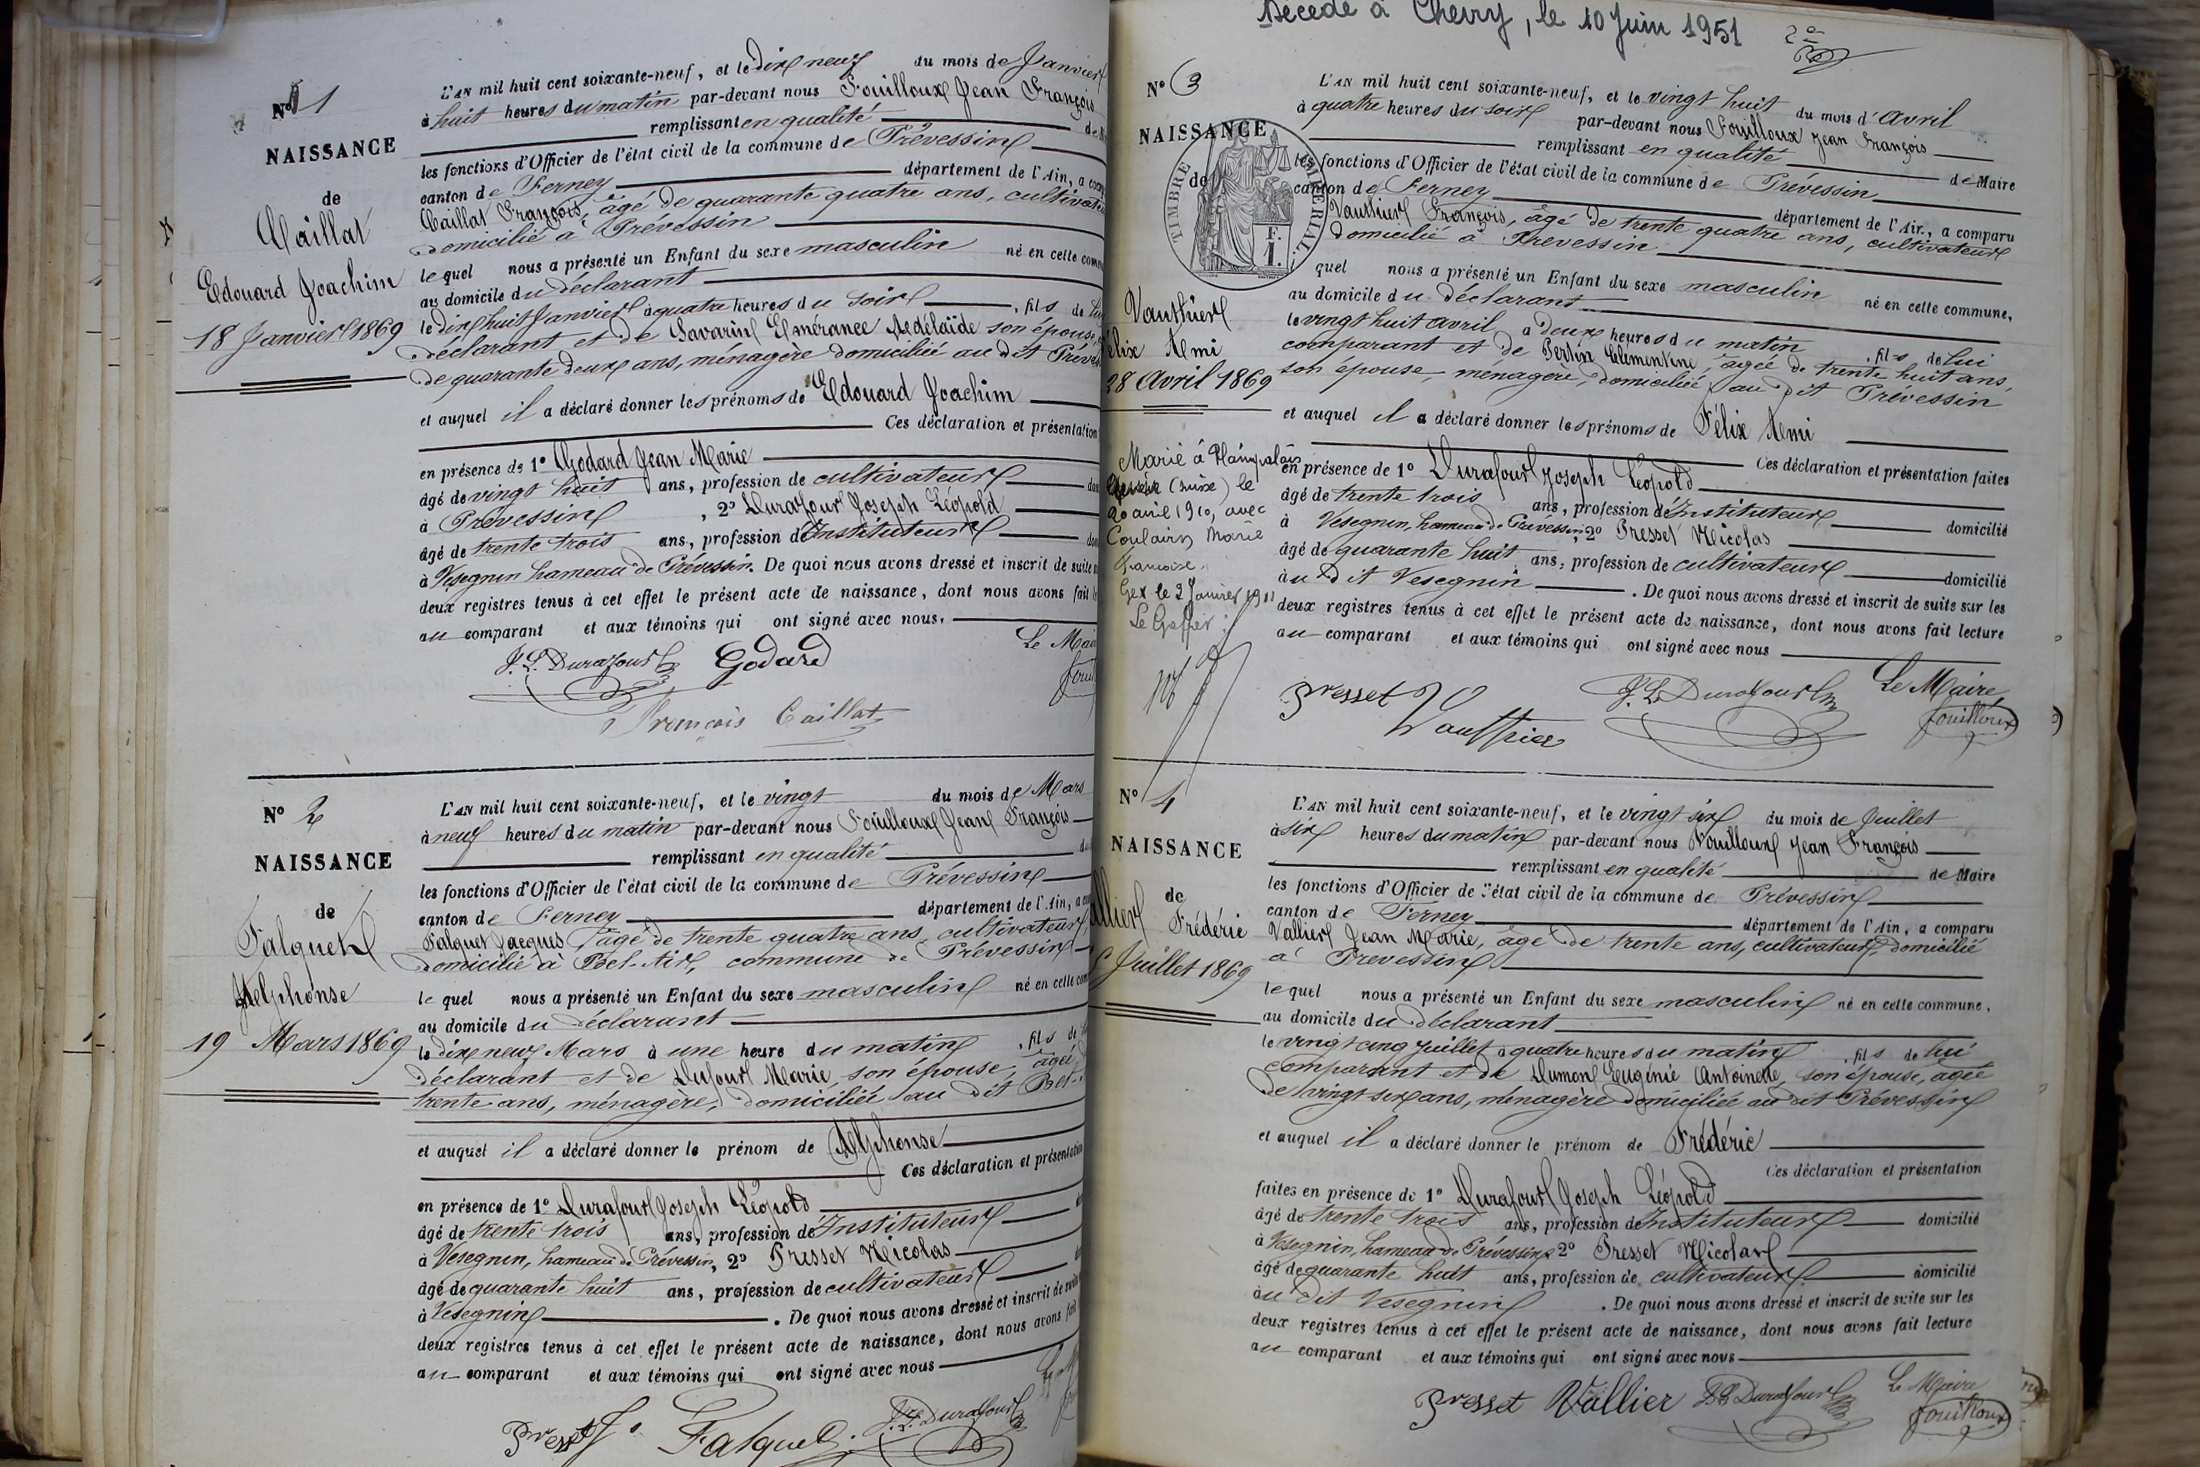 N° 1
NAISSANCE
de
Caillat
Edouard Joachim
18 Janvier 1869
L'AN mil huit cent soixante-neuf, et le dix neuf du mois de Janvier
à huit heures du matin par-devant nous Fouilloux Jean François
remplissant en qualité
les fonctions d'Officier de l'état civil de la commune de Prévessin
canton de Ferney département de l'Ain, a
Caillat François, âgé de quarante quatre ans,
domicilié à Prévessin
lequel nous a présenté un Enfant du sexe masculin né en cette
au domicile du déclarant
le dix huit Janvier à quatre heures du soir, fils de
déclarant et de Savarin Emérance Adélaïde son épouse,
de quarante deux ans, ménagère domiciliée au dit
et auquel il a déclaré donner les prénoms de Edouard Joachim
Ces déclaration et présentation
en présence de 1° Godard Jean Marie
âgé de vingt huit ans, profession de cultivateur
à Prévessin, 2° Durafour Joseph Léopold
âgé de trente trois ans, profession d'Instituteur
à Vésegnin hameau de Prévessin. De quoi nous avons dressé et inscrit de suite
deux registres tenus à cet effet le présent acte de naissance, dont nous avons fait
au comparant et aux témoins qui ont signé avec nous.
Le
J. L. Durafour Godard
François Caillat
N° 2
NAISSANCE
de
Falquet
Alphonse
19 Mars 1869
L'AN mil huit cent soixante-neuf, et le vingt du mois de Mars
à neuf heures du matin par-devant nous Fouilloux Jean François
remplissant en qualité
les fonctions d'Officier de l'état civil de la commune de Prévessin
canton de Ferney département de l'Ain, a
Falquet Jacques âgé de trente quatre ans, cultivateur
domicilié à Bel-Air, commune de Prévessin
lequel nous a présenté un Enfant du sexe masculin né en cette
au domicile du déclarant
le dix neuf Mars à une heure du matin, fils de
déclarant et de Dufour Marie, son épouse, âgée
trente ans, ménagère, domiciliée au dit
et auquel il a déclaré donner le prénom de Alphonse
Ces déclaration et présentation
en présence de 1° Durafour Joseph Léopold
âgé de trente trois ans, profession d'Instituteur
à Vésegnin, hameau de Prévessin, 2° Presset Nicolas
âgé de quarante huit ans, profession de cultivateur
à Vésegnin. De quoi nous avons dressé et inscrit de suite
deux registres tenus à cet effet le présent acte de naissance, dont nous avons fait
au comparant et aux témoins qui ont signé avec nous
Presset J. Falquet. J. L. Durafour
Décédé à Chevry, le 10 Juin 1951
N° 3
NAISSANCE
de
TIMBRE IMPERIAL
F.
1.
Vauthier
Félix Remi
28 Avril 1869
Marié à Plainpalais
(suisse) le
20 avril 1910, avec
Marie
Gex le 2 Janvier 1911
Le Greffier:
L'AN mil huit cent soixante-neuf, et le vingt huit du mois d'Avril
à quatre heures du soir par-devant nous Fouilloux Jean François
remplissant en qualité de Maire
les fonctions d'Officier de l'état civil de la commune de Prévessin
canton de Ferney département de l'Ain, a comparu
Vauthier François, âgé de trente quatre ans, cultivateur
domicilié à Prévessin
quel nous a présenté un Enfant du sexe masculin né en cette commune,
au domicile du déclarant
le vingt huit avril à deux heures du matin, fils de lui
comparant et de Pertin Clémentine, âgée de trente huit ans,
son épouse, ménagère, domiciliée au dit Prévessin
et auquel il a déclaré donner les prénoms de Félix Remi
Ces déclaration et présentation faites
en présence de 1° Durafour Joseph Léopold
âgé de trente trois ans, profession d'Instituteur domicilié
à Vésegnin, hameau de Prévessin, 2° Presset Nicolas
âgé de quarante huit ans, profession de cultivateur domicilié
au dit Vésegnin. De quoi nous avons dressé et inscrit de suite sur les
deux registres tenus à cet effet le présent acte de naissance, dont nous avons fait lecture
au comparant et aux témoins qui ont signé avec nous
Presset Vauthier J. L. Durafour Le Maire
Fouilloux
N° 4
NAISSANCE
de
Frédéric
Juillet 1869
L'AN mil huit cent soixante-neuf, et le vingt six du mois de Juillet
à six heures du matin par-devant nous Fouilloux Jean François
remplissant en qualité de Maire
les fonctions d'Officier de l'état civil de la commune de Prévessin
canton de Ferney département de l'Ain, a comparu
Vallier Jean Marie, âgé de trente ans, cultivateur, domicilié
à Prévessin
lequel nous a présenté un Enfant du sexe masculin né en cette commune,
au domicile du déclarant
le vingt cinq Juillet à quatre heures du matin, fils de lui
comparant et de Dumon Eugénie Antoinette, son épouse, âgée
de vingt six ans, ménagère domiciliée au dit Prévessin
et auquel il a déclaré donner le prénom de Frédéric
Ces déclaration et présentation
faites en présence de 1° Durafour Joseph Léopold
âgé de trente trois ans, profession d'Instituteur domicilié
à Vésegnin, hameau de Prévessin 2° Presset Nicolas
âgé de quarante huit ans, profession de cultivateur domicilié
au dit Vésegnin. De quoi nous avons dressé et inscrit de suite sur les
deux registres tenus à cet effet le présent acte de naissance, dont nous avons fait lecture
au comparant et aux témoins qui ont signé avec nous
Presset Vallier J. L. Durafour Le Maire
Fouilloux